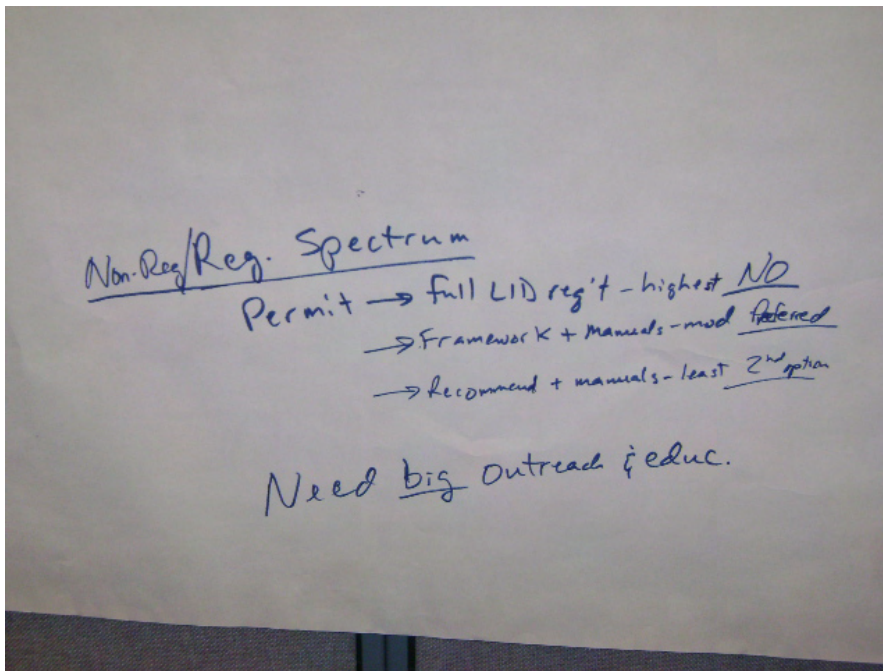 Non-Reg/Reg. Spectrum
Permit → full LID req't - highest NO
→ Framework + Manuals - mod Preferred
→ Recommend + manuals - least 2nd option
Need big outreach & educ.